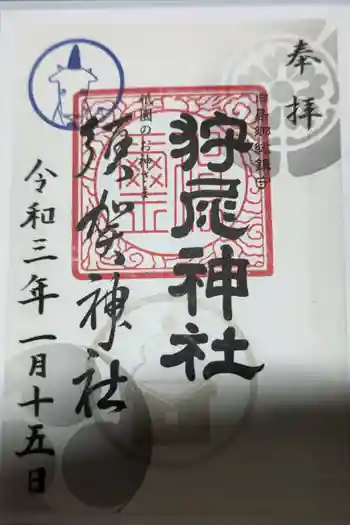 奉拝
狩尾神社
祇園のお神さま
須賀神社
令和三年一月十五日